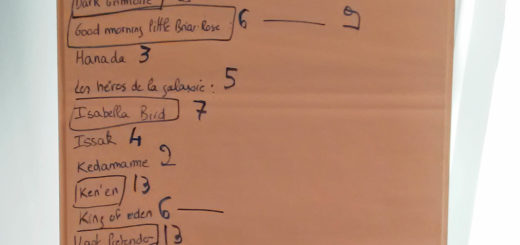 Dark Grimoire
Good morning little Briar-Rose 6 — 9
Hanada 3
Les héros de la galaxie : 5
Isabella Bird 7
Issak 4
Kedamame 2
Ken'en 13
King of eden 6 —
13